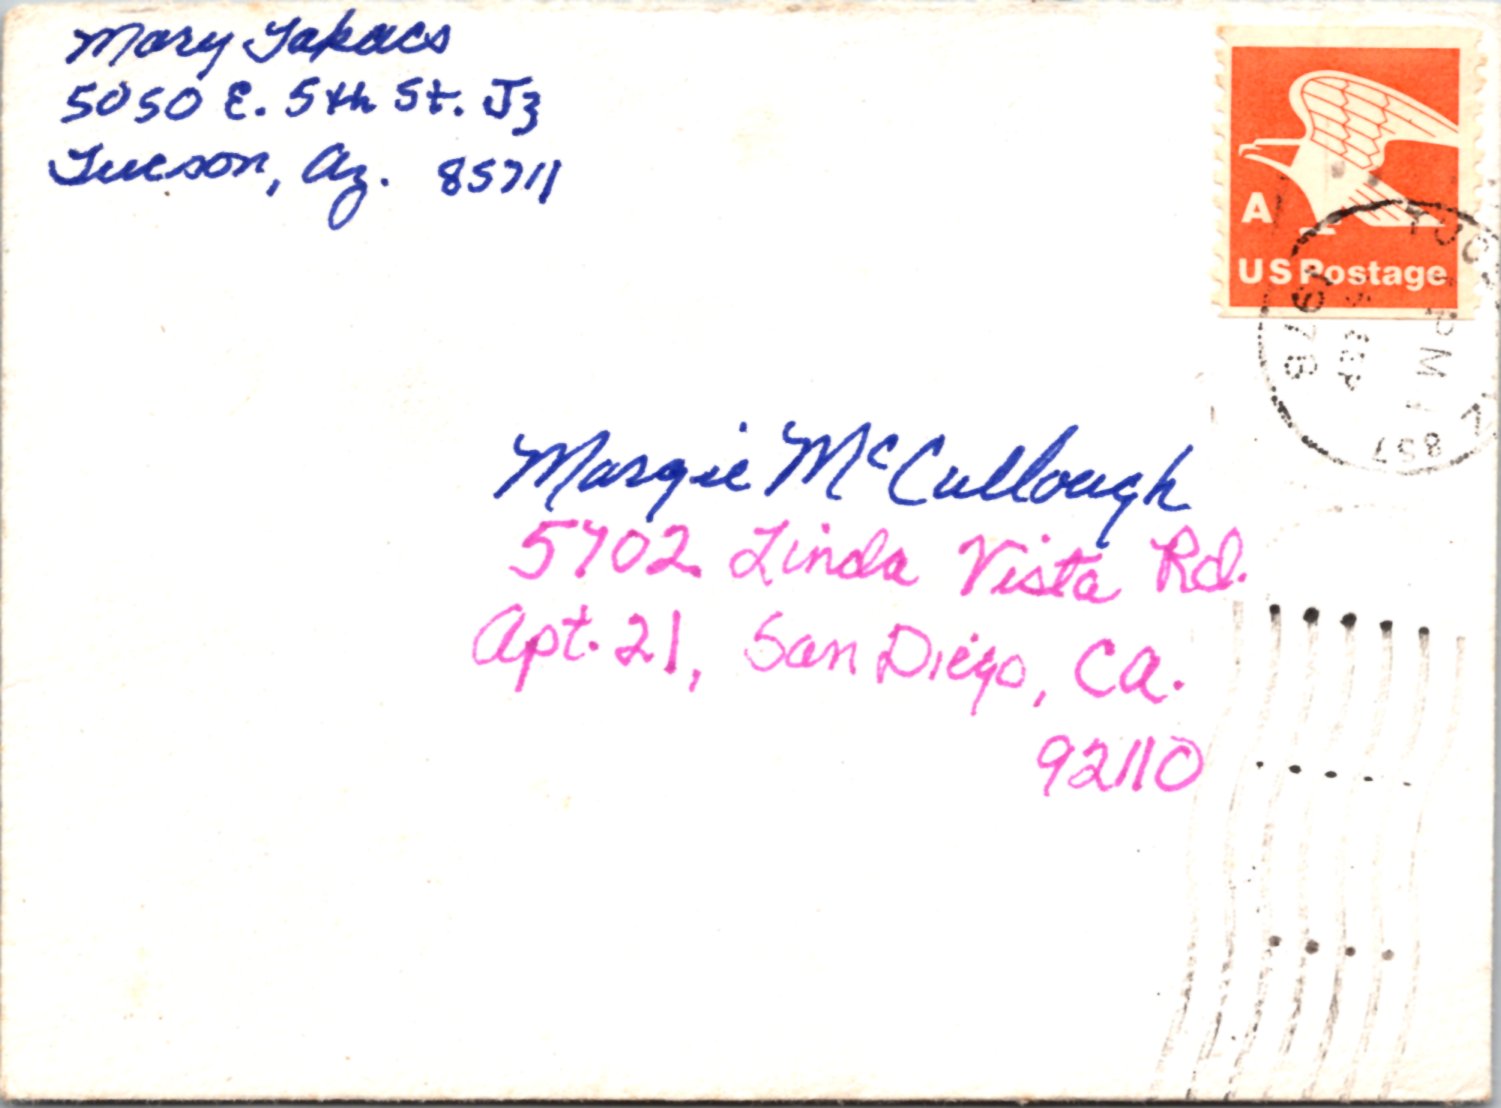 Mary Takacs
5050 E. 5th St. J3
Tucson, Az. 85711
A
US Postage
TUC
PM
SEP
1978
857
Margie McCullough
5702 Linda Vista Rd.
Apt. 21, San Diego, CA.
92110